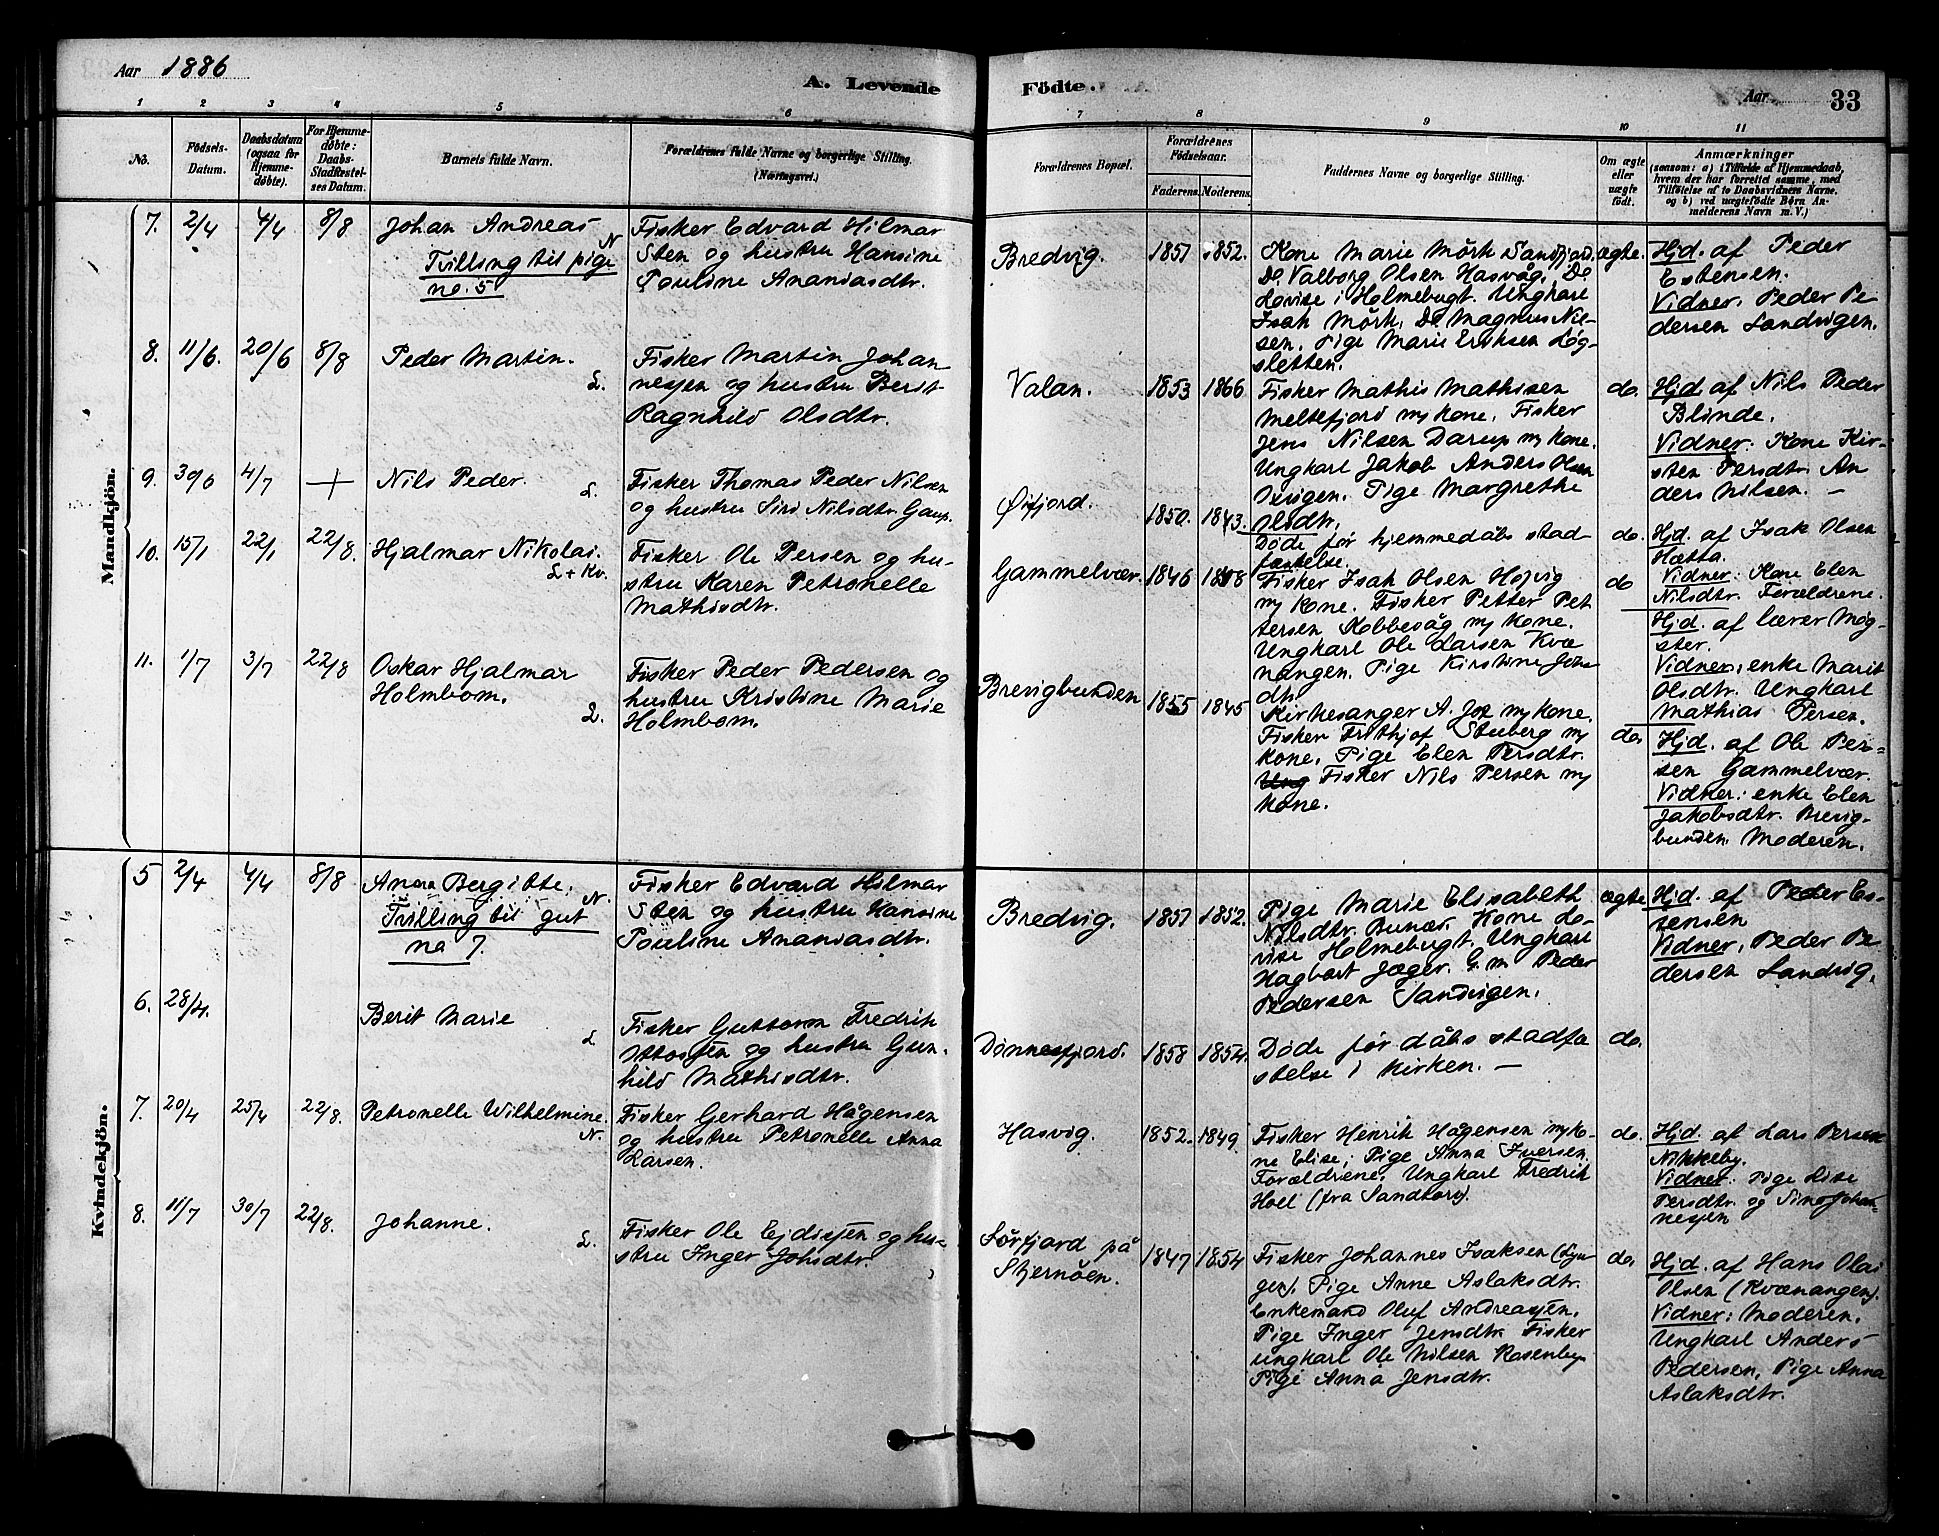 Aar 1886
A. Levende
Födte.
Aar
33
1 2 3 4 5 6 7 8 9 10 11
No.
Födsels-
Datum.
Daabsdatum
(ogsaa for
Hjemme-
døbte).
For Hjemme-
døbte:
Daabs-
Stadfæstel-
ses Datum.
Barnets fulde Navn.
Forældrenes fulde Navne og borgerlige Stilling.
(Næringsvei.)
Forældrenes Bopæl.
Forældrenes
Födselsaar.
Faderens. Moderens.
Faddernes Navne og borgerlige Stilling.
Om ægte
eller
uægte
født.
Anmærkninger
(saasom: a) i Tilfælde af Hjemmedaab,
hvem der har forrettet samme, med
Tilføielse af to Daabsvidners Navne,
og b) ved uægtefödte Börn An-
melderens Navn m. V.)
Mandkjön.
7. 2/4 4/4 8/8
Johan Andreas
N
Tvilling til pige
no. 5
Fisker Edvard Hilmar
Sten og hustru Hansine
Pouline Ananiasdtr.
Bredvig.
1857 1852.
Kone Marie Mörk Sandfjord.
Do Valborg Olsen Hasvåg, Do
Lovise i Holmebugt. Ungkarl
Isak Mörk, Do Magnus Niel-
sen. Pige Marie Eriksen Løg-
sletten.
ægte.
Hjd. af Peder
Estensen.
Vidner. Peder Pe
dersen Sandvigen.
8. 11/6. 20/6 8/8
Peder Martin.
L.
Fisker Martin Johan
nesjen og hustru Berit
Ragnhild Olsdtr.
Valan.
1853 1866
Fisker Mathis Mathisen
Meltefjord m/ kone. Fisker
Jens Nilsen Darup m/ kone.
Ungkarl Jakob Anders Olsen
Oxvigen. Pige Margrethe
Olsdtr.
do.
Hjd. af Nils Peder
Blinde.
Vidner: Kone Kir-
sten Persdtr. An
ders Nilsen. –
9. 30/6 4/7 +
Nils Peder.
L.
Fisker Thomas Peder Nilsen
og hustru Siri Nilsdtr. Gaup.
Øxfjord.
1850. 1843.
Døde før hjemmedåbs stad
fæstelse.
do.
Hjd. af Isak Olsen
Hætta.
Vidner: Kone Elen
Nilsdtr. Forældrene.
10. 15/1 22/1 22/8.
Hjalmar Nikolai.
L + Kv.
Fisker Ole Persen og hu-
stru Karen Petronelle
Mathisdtr.
Gammelvær.
1846
Fisker Isak Olsen Højvig
m/ kone. Fisker Petter Pet
tersen Kobbevåg m/ kone.
Ungkarl Ole Larsen Kvæ
nangen. Pige Kirstine Jens
dtr
do
Hjd. af lærer Møg-
ster.
Vidner, enke Marit
Olsdtr. Ungkarl
Mathias Persen.
11. 1/7 3/7 22/8
Oskar Hjalmar
Holmbom.
L.
Fisker Peder Pedersen og
hustru Kristine Marie
Holmbom.
Brevigbunden
1855 1845
Kirkesanger A. Jox m/ kone.
Fisker Frithjof Stuberg m/
kone. Pige Elen Persdtr.
Ung Fisker Nils Persen m/
kone.
do.
Hjd. af Ole Per-
sen Gammelvær.
Vidner: enke Elen
Jakobsdtr. Brevig-
bunden. Moderen.
Kvindekjön.
5 2/4 4/4 8/8
Anna Bergitte.
N.
Tvilling til gut
no 7.
Fisker Edvard Hilmar
Sten og hustru Hansine
Pouline Ananiasdtr.
Bredvig.
1857 1852.
Pige Marie Elisabeth
Nilsdtr. Bunær. Kone Lo-
vise Holmebugt. Ungkarl
Hagbart Jæger. G.m. Peder
Pedersen Sandvigen.
ægte
Hjd. af Peder Es-
tensen
Vidner, Peder Pe
dersen Sandvig.
6. 28/4.
Berit Marie
L
Fisker Guttorm Fredrik
Ottosjen og hustru Gun-
hild Mathisdtr.
Dønnesfjord.
1858 1854.
Døde før dåbs stadfæ
stelse i kirken. –
do.
7. 20/4 25/4 22/8.
Petronelle Wilhelmine.
N.
Fisker Gerhard Hågensen
og hustru Petronelle Anna
Larsen.
Hasvig.
1852. 1849.
Fisker Henrik Hågensen m/ ko-
ne Elise, Pige Anna Iversen.
Forældrene. Ungkarl Fredrik
Hoel (fra Sandtorv).
do.
Hjd. af Lars Persen
Nikkeby.
Vidner: Pige Lise
Persdtr. og Sina Johan-
nesjen
8. 11/7 30/7 22/8.
Johanne.
L.
Fisker Ole Ejdisjen og hu-
stru Inger Johsdtr.
Sørfjord på
Stjernöen.
1847 1854
Fisker Johannes Isaksen (Lyn-
gen). Pige Anne Aslaksdtr.
Enkemand Oluf Andreasjen.
Pige Inger Jensdtr. Fisker
ungkarl Ole Nilsen Rosenbyr
Pige Anna Jensdtr.
do.
Hjd. af Hans Olai
Olsen (Kvænangen).
Vidner: Moderen.
Ungkarl Anders
Pedersen, Pige Anna
Aslaksdtr.